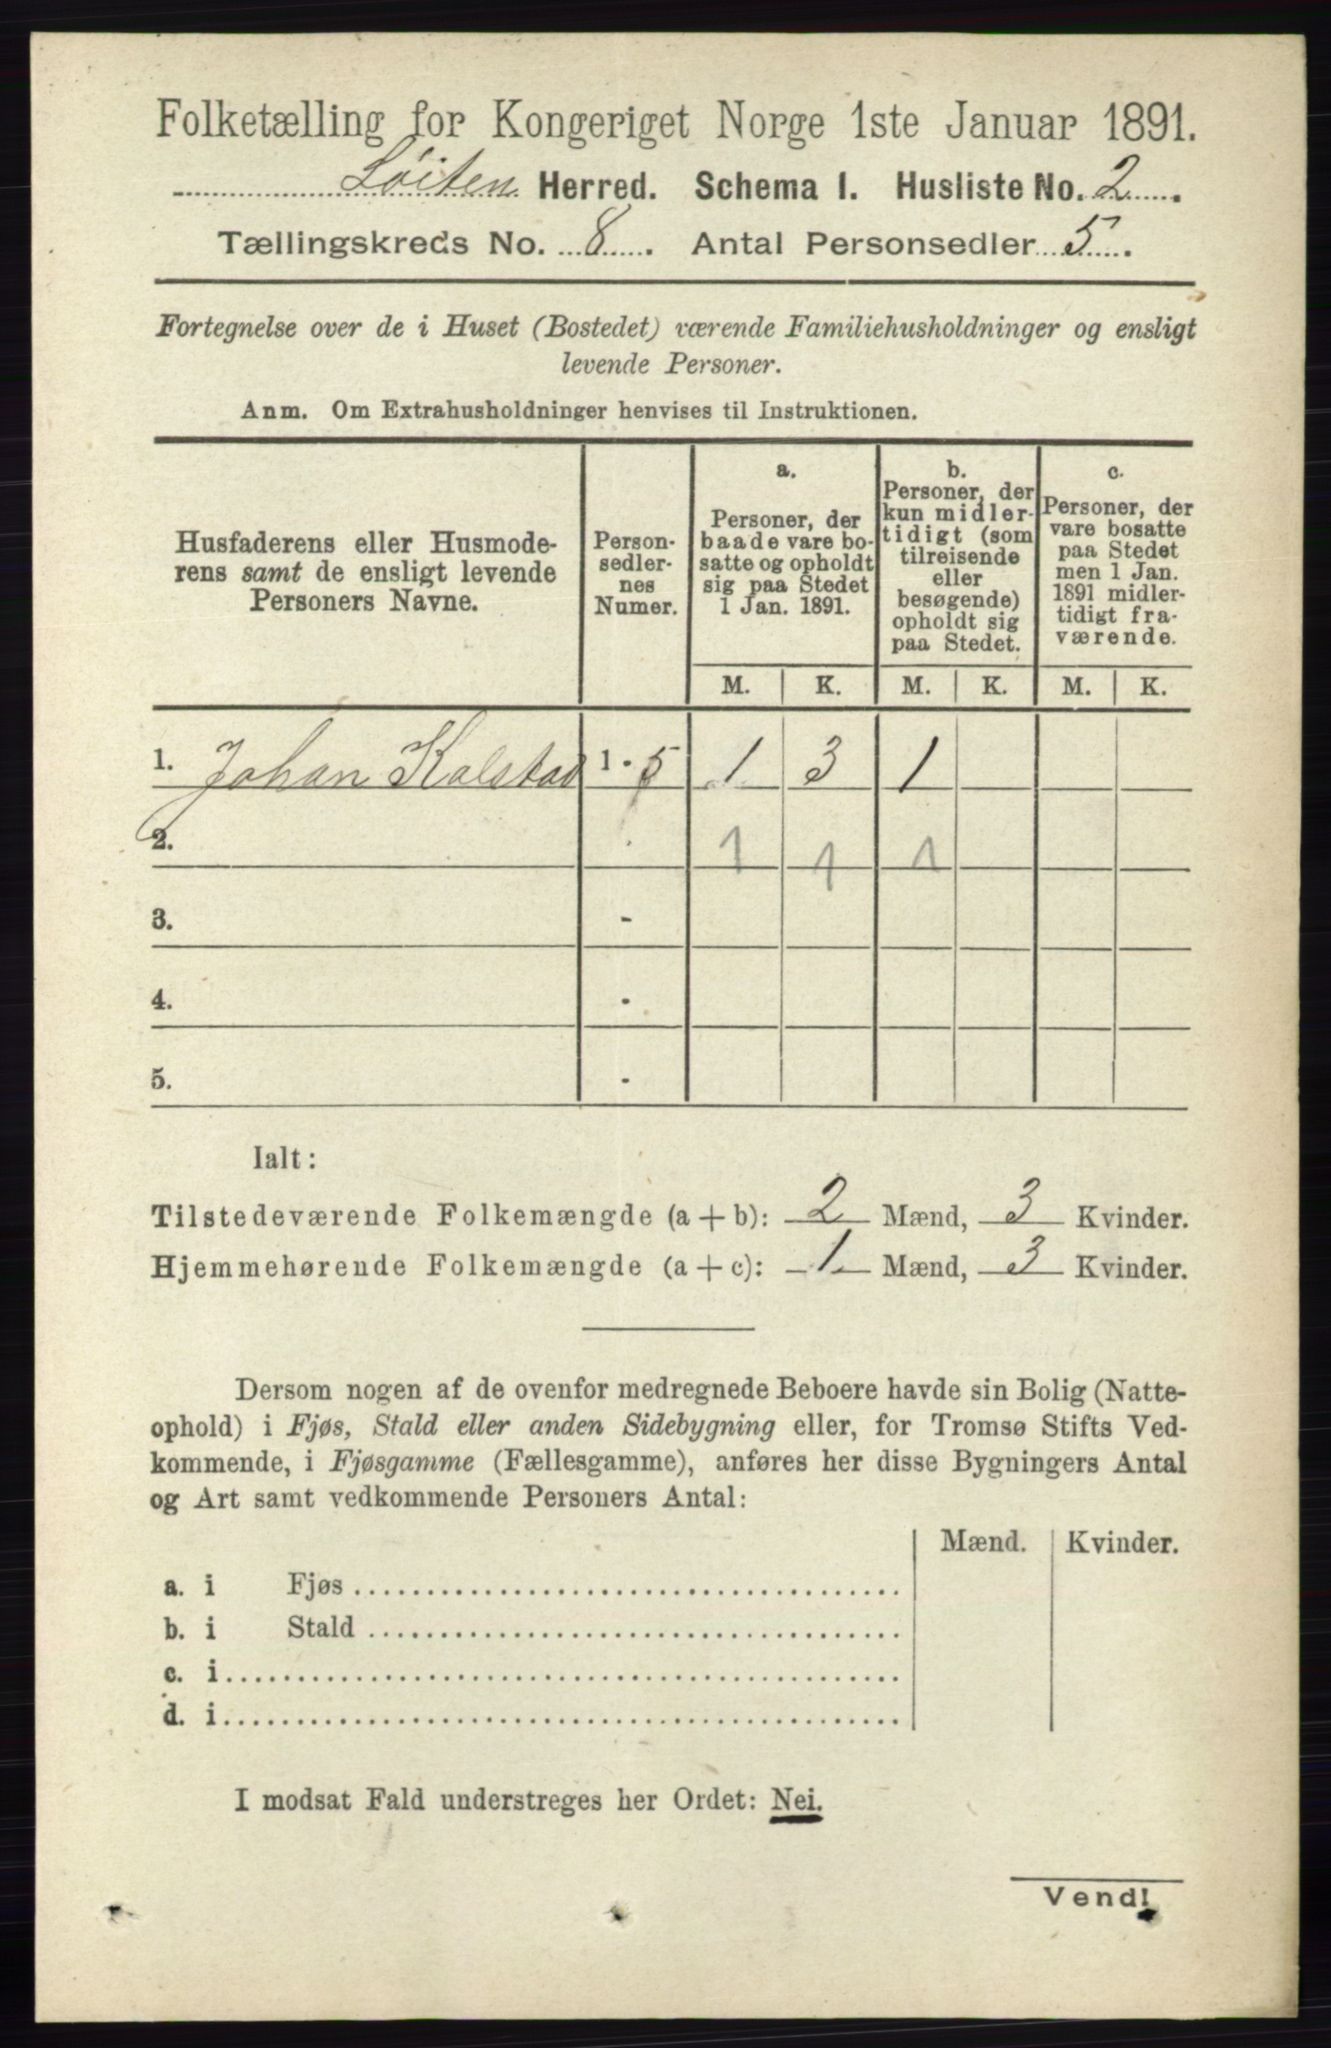 Folketælling for Kongeriget Norge 1ste Januar 1891.
Löiten Herred. Schema I. Husliste No. 2.
Tællingskreds No. 8. Antal Personsedler 5.
Fortegnelse over de i Huset (Bostedet) værende Familiehusholdninger og ensligt
levende Personer.
Anm. Om Extrahusholdninger henvises til Instruktionen.
Husfaderens eller Husmode-
rens samt de ensligt levende
Personers Navne.
Person-
sedler-
nes
Numer.
a.
Personer, der
baade vare bo-
satte og opholdt
sig paa Stedet
1 Jan. 1891.
b.
Personer, der
kun midler-
tidigt (som
tilreisende
eller
besøgende)
opholdt sig
paa Stedet.
c.
Personer, der
vare bosatte
paa Stedet
men 1 Jan.
1891 midler-
tidigt fra-
værende.
M. K. M. K. M. K.
1. Johan Kalstad 1 - 5 1 3 1
2. 1 1 1
3. -
4. -
5. -
Ialt:
Tilstedeværende Folkemængde (a + b): 2 Mænd, 3 Kvinder.
Hjemmehørende Folkemængde (a + c): 1 Mænd, 3 Kvinder.
Dersom nogen af de ovenfor medregnede Beboere havde sin Bolig (Natte-
ophold) i Fjøs, Stald eller anden Sidebygning eller, for Tromsø Stifts Ved-
kommende, i Fjøsgamme (Fællesgamme), anføres her disse Bygningers Antal
og Art samt vedkommende Personers Antal:
Mænd. Kvinder.
a. i Fjøs
b. i Stald
c. i
d. i
I modsat Fald understreges her Ordet: Nei.
Vend!